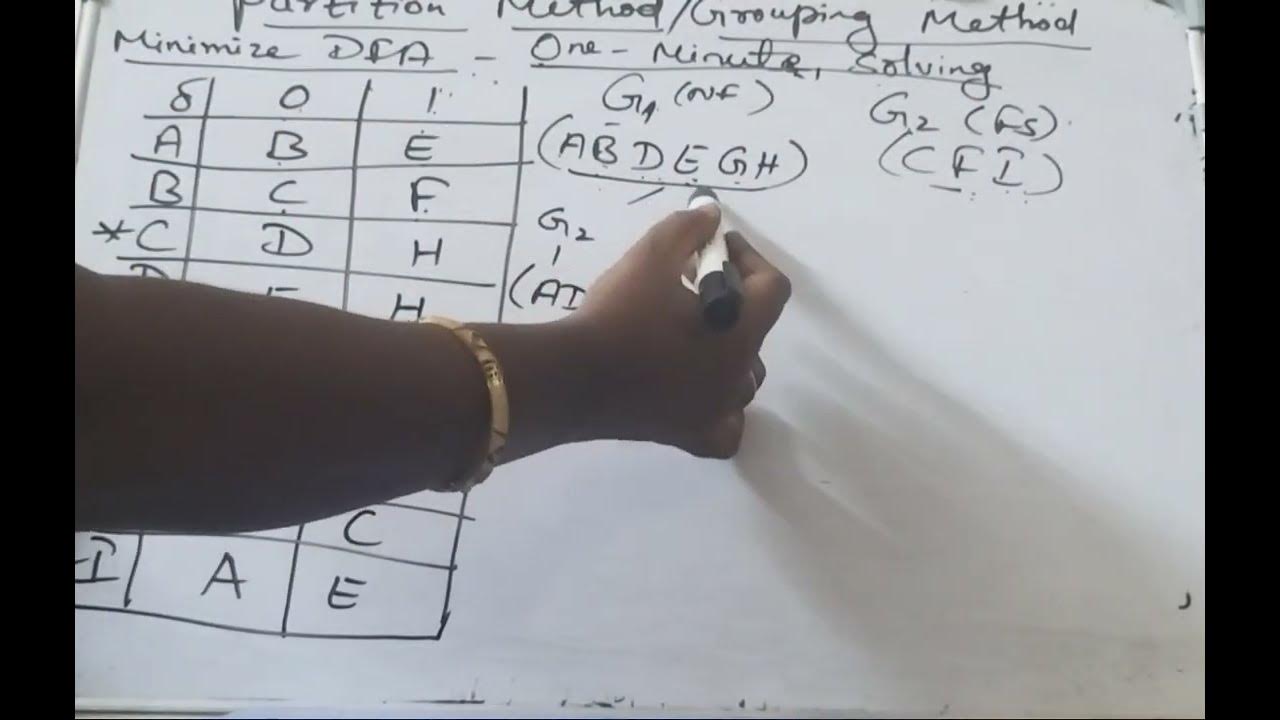 Partition Method/Grouping Method
Minimize DFA - One-Minute, Solving
δ 0 1
A B E
B C F
*C D H
D E H
C
I A E
G1 (NF)
(A B D E G H)
G2 (FS)
(C F I)
G2
(A